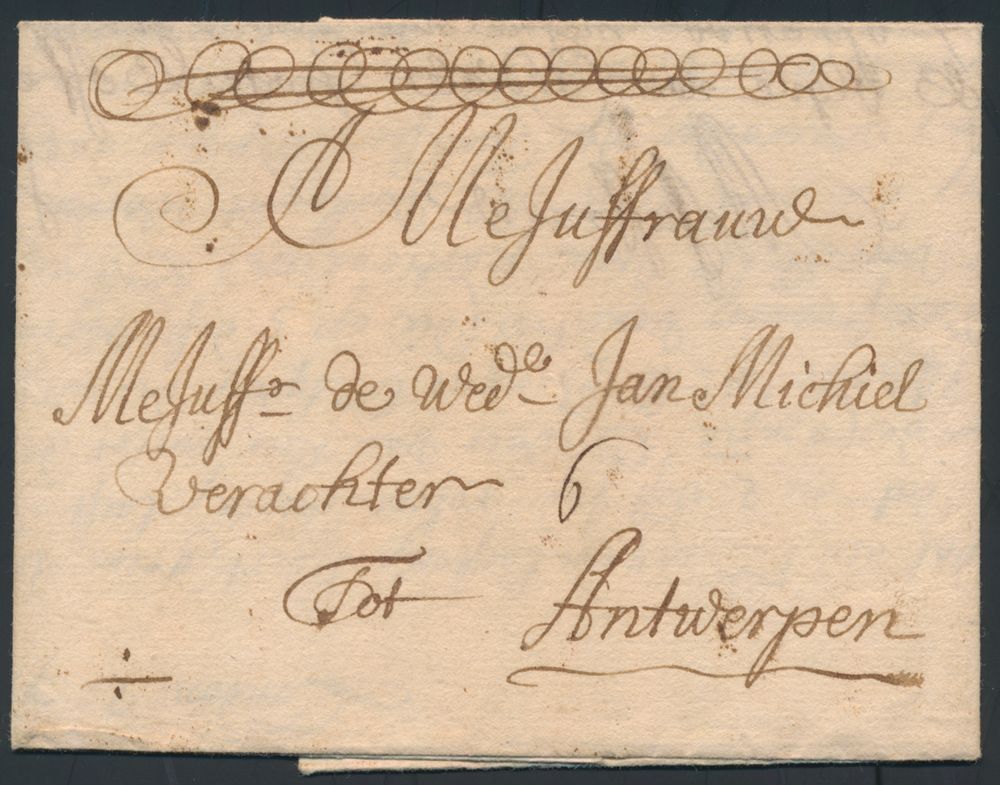 MeJuffrauwe
MeJuffr. de Wed.e Jan Michiel
Verachter 6
Tot Antwerpen